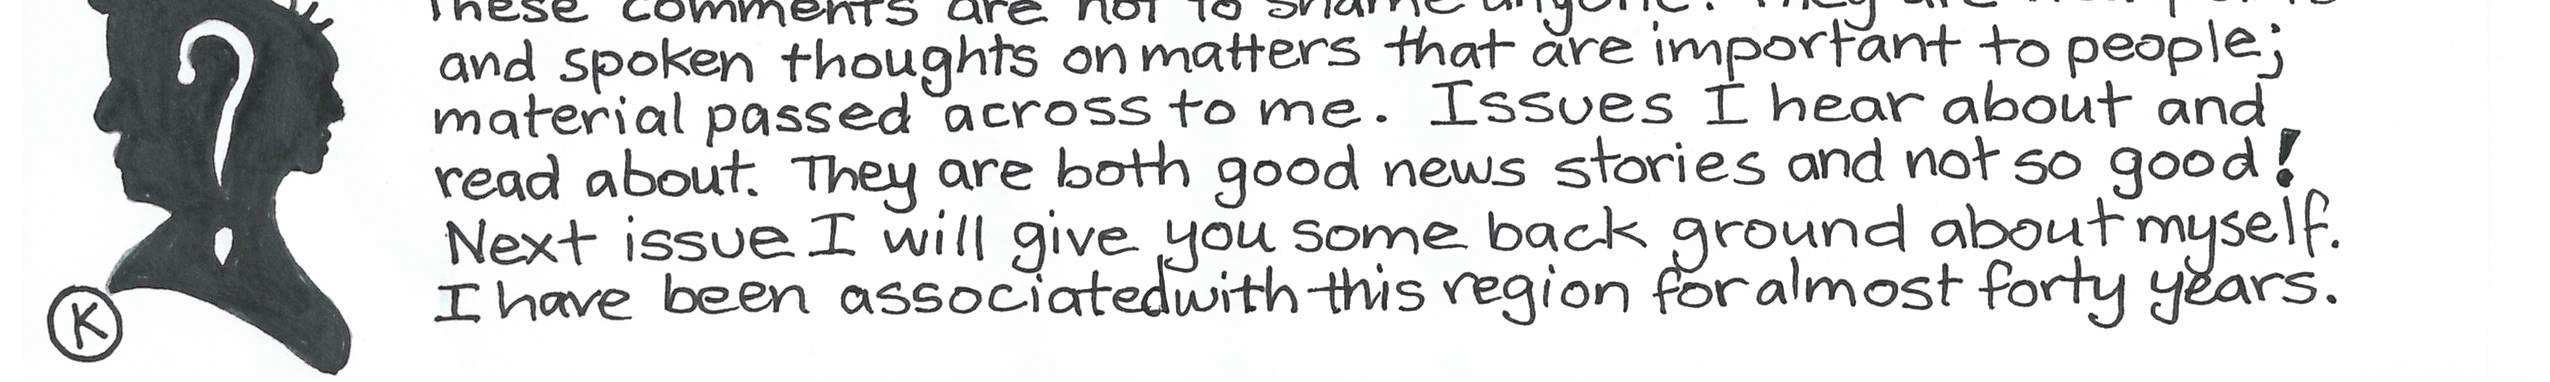 These comments are not to shame anyone. They are
and spoken thoughts on matters that are important to people;
material passed across to me. Issues I hear about and
read about. They are both good news stories and not so good!
Next issue I will give you some back ground about myself.
I have been associated with this region for almost forty years.
?
K